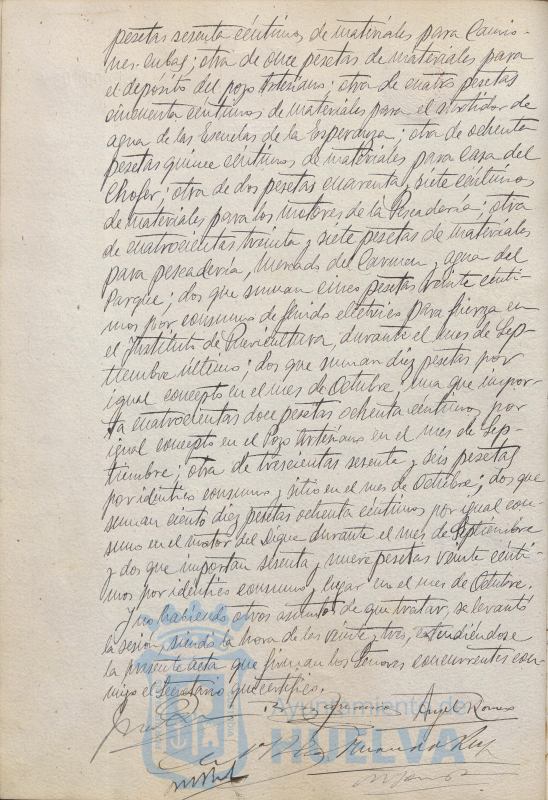 pesetas sesenta céntimos de materiales para Camio-
nes-cubas; otra de once pesetas de materiales para
el depósito del pozo Artesiano; otra de cuatro pesetas
cincuenta céntimos de materiales para el surtidor de
agua de las Escuelas de la Esperanza; otra de ochenta
pesetas quince céntimos de materiales para Casa del
Chofer; otra de dos pesetas cuarenta y siete céntimos
de materiales para los motores de la Pescadería; otra
de cuatrocientas treinta y siete pesetas de materiales
para pescadería, Mercado del Carmen y agua del
Parque; dos que suman cinco pesetas veinte cénti-
mos por consumo de fluido eléctrico para fuerza en
el Instituto de Puericultura, durante el mes de Sep-
tiembre último; dos que suman diez pesetas por
igual concepto en el mes de Octubre; una que impor-
ta cuatrocientas doce pesetas ochenta céntimos por
igual concepto en el Pozo Artesiano en el mes de Sep-
tiembre; otra de trescientas sesenta y seis pesetas
por idéntico consumo y sitio en el mes de Octubre; dos que
suman ciento diez pesetas ochenta céntimos por igual con-
sumo en el motor del Dique durante el mes de Septiembre
y dos que importan sesenta y nueve pesetas veinte cénti-
mos por idéntico consumo y lugar en el mes de Octubre.
Y no habiendo otros asuntos de que tratar, se levantó
la sesión, siendo la hora de las veinte y tres, extendiéndose
la presente acta que firman los Señores concurrentes con-
migo el Secretario que certifico.
Ayuntamiento de
HUELVA